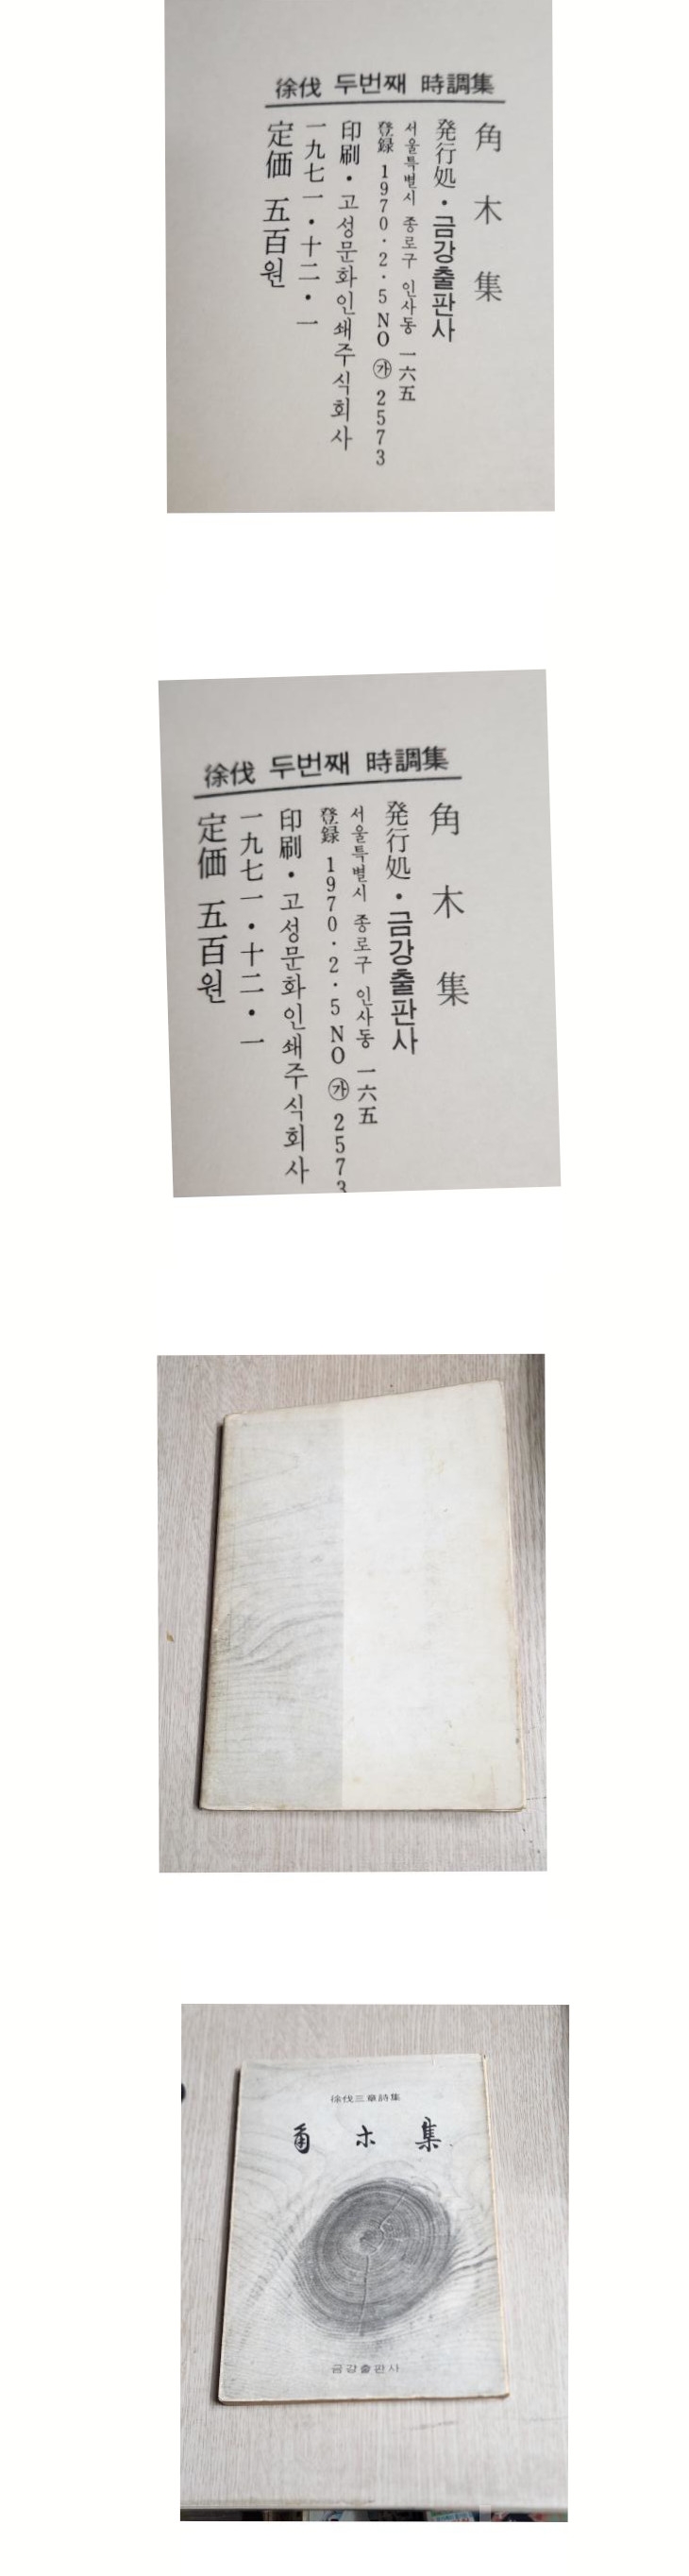 徐伐 두번째 時調集
角木集
発行処・금강출판사
서울특별시 종로구 인사동 一六五
登録 1970·2·5 NO ㉮ 2573
印刷・고성문화인쇄주식회사
一九七一・十二・一
定価 五百원
徐伐 두번째 時調集
角木集
発行処・금강출판사
서울특별시 종로구 인사동 一六五
登録 1970·2·5 NO ㉮ 2573
印刷・고성문화인쇄주식회사
一九七一・十二・一
定価 五百원
徐伐三章詩集
角木集
금강출판사